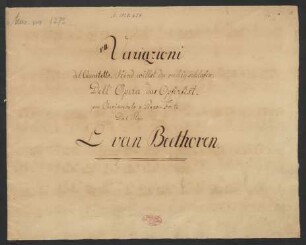 Variazioni
del Quartetto, Kind willst du ruhig schlafen
Dell Opera das Opferfest.
per Clavicembalo o Piano-Forte
Del Sig.
L van Beethoven